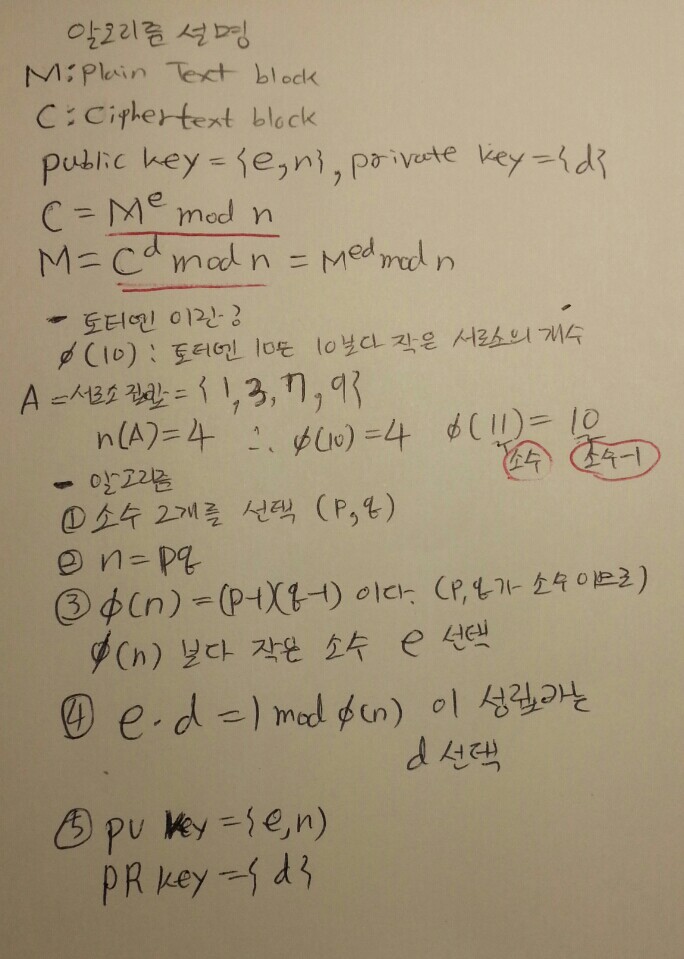 알고리즘 설명
M: Plain Text block
C: Ciphertext block
public key = {e, n}, private key = {d}
C = M^e mod n
M = C^d mod n = M^ed mod n
- 토터엔 이란?
ϕ(10) : 토터엔 10은 10보다 작은 서로소의 개수
A = 서로소 집합 = {1, 3, 7, 9}
n(A) = 4 ∴ ϕ(10) = 4 ϕ(11) = 10
소수 소수-1
- 알고리즘
① 소수 2개를 선택 (P, q)
② n = pq
③ ϕ(n) = (p-1)(q-1) 이다. (P, q가 소수이므로)
ϕ(n) 보다 작은 소수 e 선택
④ e·d = 1 mod ϕ(n) 이 성립하는
d 선택
⑤ PU key = {e, n)
PR key = {d}